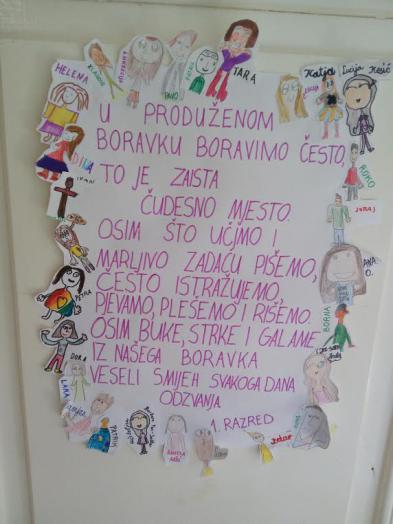 U PRODUŽENOM
BORAVKU BORAVIMO ČESTO,
TO JE ZAISTA
ČUDESNO MJESTO.
OSIM ŠTO UČIMO I
MARLJIVO ZADAĆU PIŠEMO,
ČESTO ISTRAŽUJEMO,
PJEVAMO, PLEŠEMO I RIŠEMO.
OSIM BUKE, STRKE I GALAME
IZ NAŠEGA BORAVKA
VESELI SMIJEH SVAKOGA DANA
ODZVANJA.
1. RAZRED
HELENA
TARA
Katja
Lucija Kesić
ROKO
JURAJ
ANA
O.
BORNA
DINA
IVAN
PETRA
DORA
LARA
PATRIK
Petar